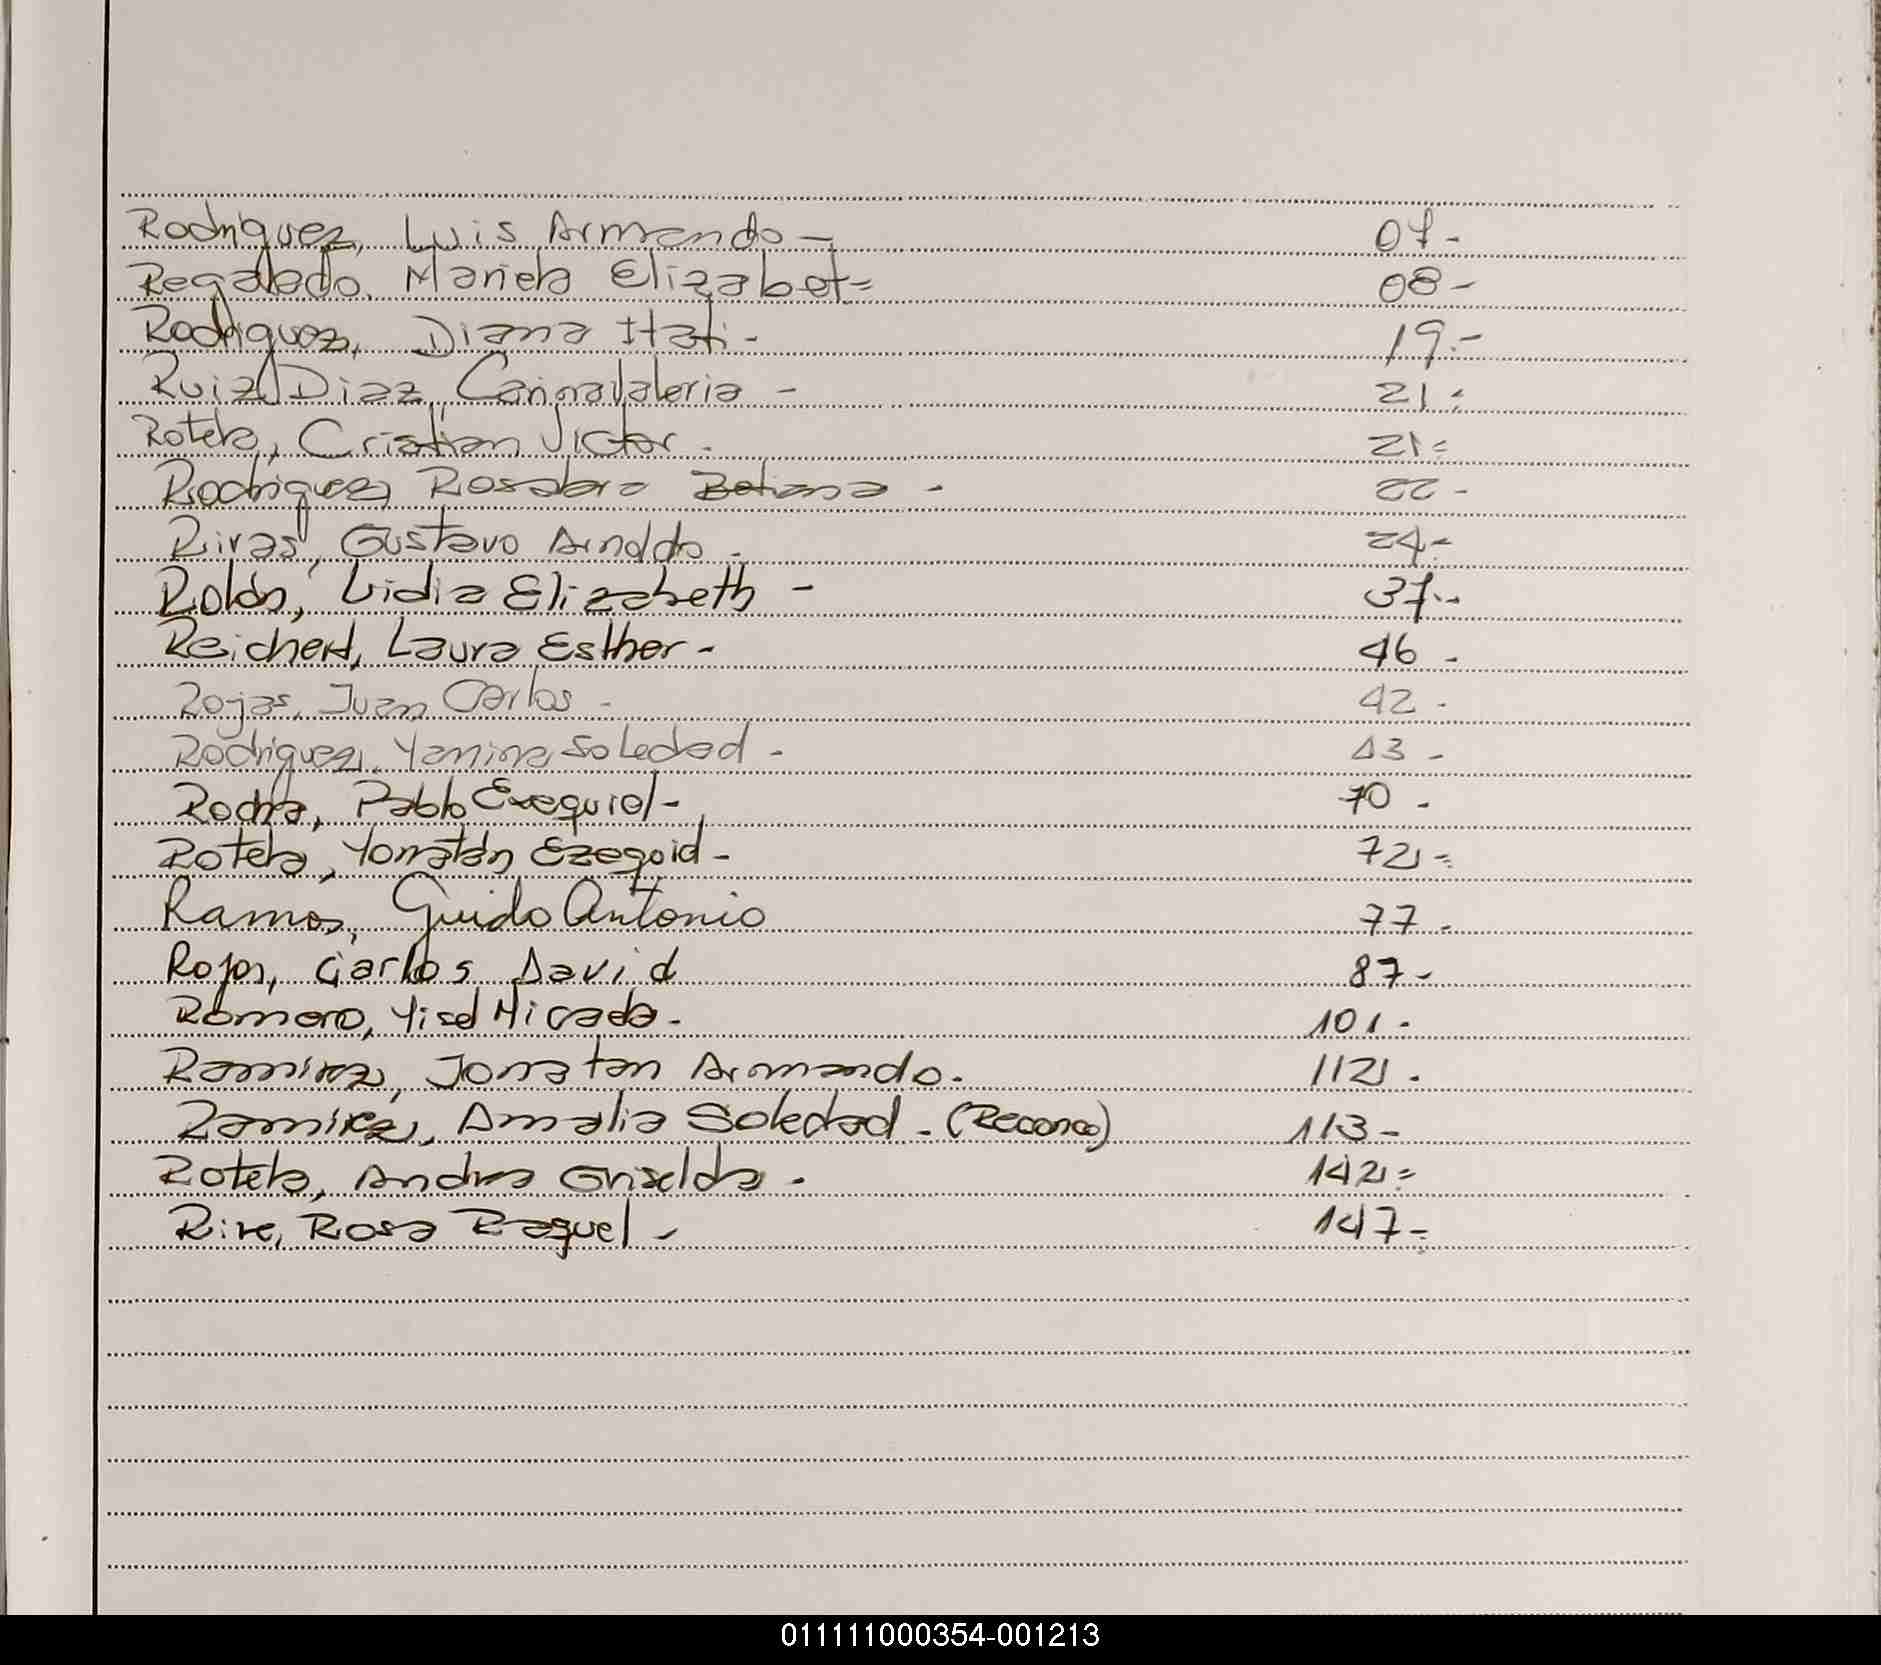 Rodriguez, Luis Armando - 07-
Regalado, Mariela Elizabet= 08-
Rodriguez, Diana Itati - 19.-
Ruiz Diaz, Carina Valeria - 21=
Rotela, Cristian Victor. 21=
Rodriguez, Rosalara Betiana - 22-
Rivas, Gustavo Arnoldo - 24-
Rolón, Lidia Elizabeth - 37--
Reichert, Laura Esther - 46 -
Rojas, Juan Carlos - 42 -
Rodriguez, Yanina Soledad - 43 -
Rocha, Pablo Exequiel - 70 -
Rotela, Yonatán Ezequiel - 72=
Ramos, Guido Antonio 77 -
Rojas, Carlos David 87-
Romero, Yisel Micaela - 101 -
Ramirez, Jonatan Armando. 112 .
Ramirez, Amalia Soledad - (Reconoc) 113 -
Rotela, Andrea Griselda - 142=
Rive, Rosa Raquel - 147=
011111000354-001213